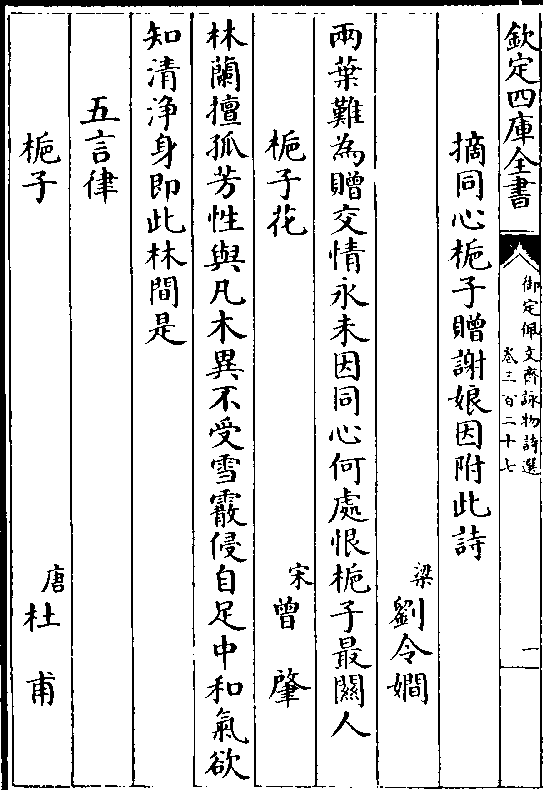 欽定四庫全書
御定佩文齋詠物詩選
卷三百二十七
一
摘同心梔子贈謝娘因附此詩
梁劉令嫺
兩葉難為贈交情永未因同心何處恨梔子最關人
梔子花 宋曾肇
林蘭擅孤芳性與凡木異不受雪霰侵自足中和氣欲
知清淨身即此林間是
五言律
梔子 唐杜甫